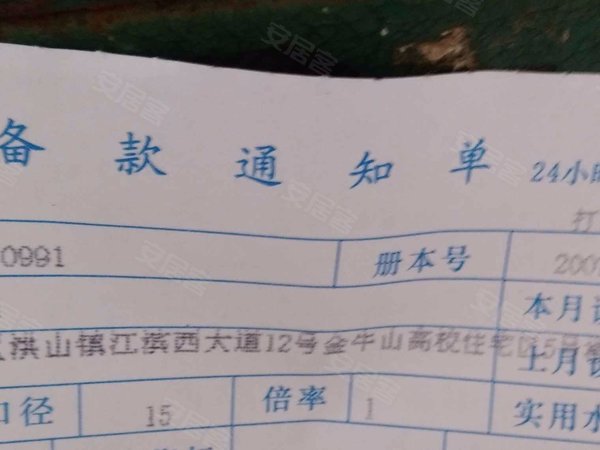 备款通知单 24小时
打
0991 册本号 200
本月
洪山镇江滨西大道12号金牛山高校住宅区5号
上月
口径 15 倍率 1 实用水